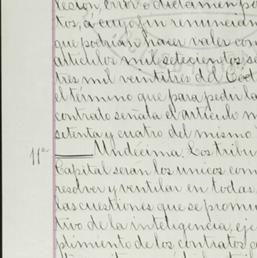 lesión, error ó dictámen po
tos, á cuyo fin renuncian
que podrían hacer valer con
artículos mil setecientos se
tres mil veintitres del Cód
el término que para pedir la
contrato señala el artículo m
setenta y cuatro del mismo
11ª Undécima. Los tribu
Capital serán los únicos com
resolver y ventilar en todas
las cuestiones que se promu
tivo de la inteligencia, eje
plimiento de los contratos